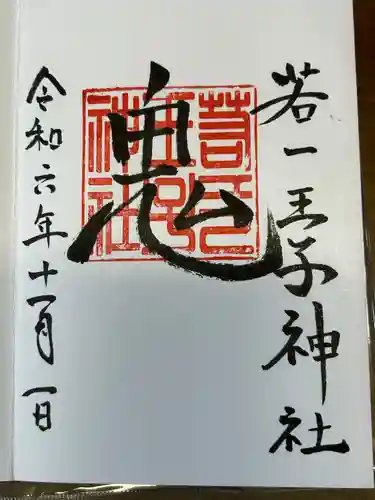 若一王子神社
鬼
若一王子神社
令和六年十一月一日